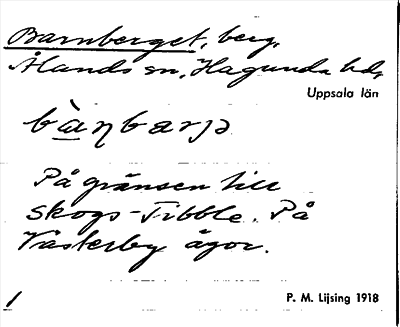 Barnberget, berg,
Ålands sn, Hagunda hd,
Uppsala län
På gränsen till
Skogs-Tibble. På
Västerby ägor.
P. M. Lijsing 1918